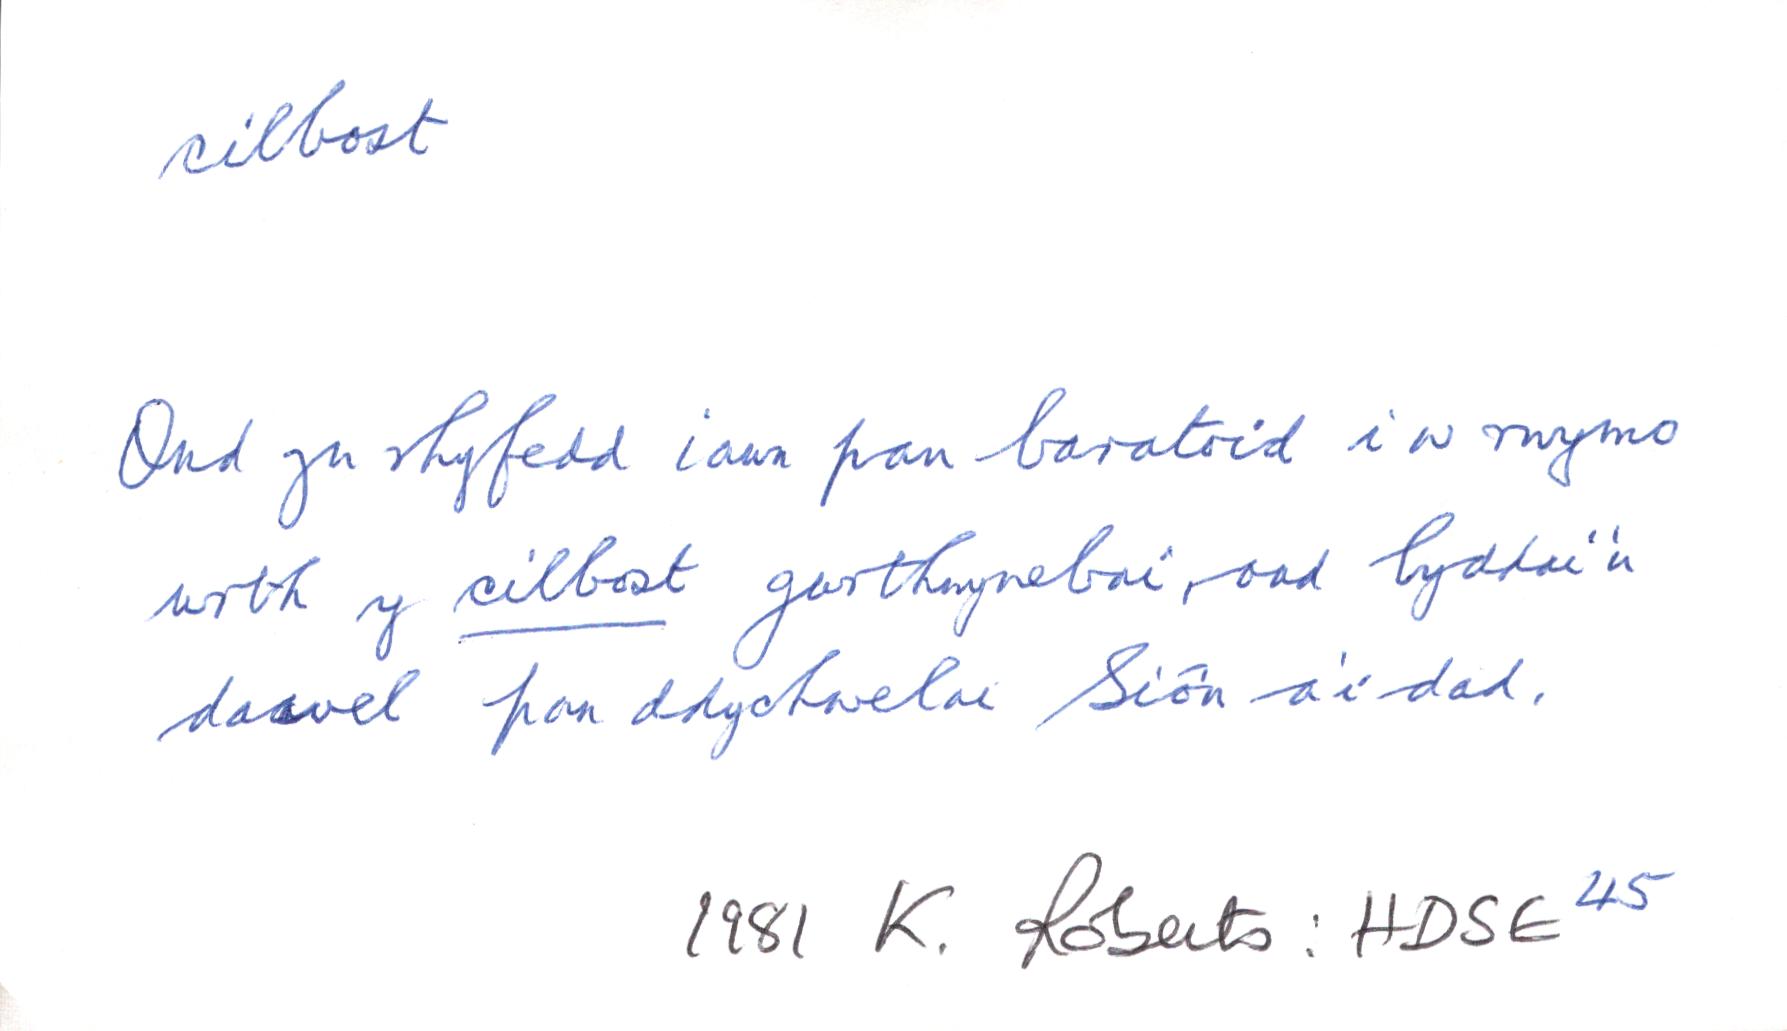 cilbost
Ond yn rhyfedd iawn pan baratoid i'w rwymo
wrth y cilbost gwrthwynebai, ond byddai'n
dawel pan ddychwelai Siôn a'i dad.
1981 K. Roberts : HDSE 45